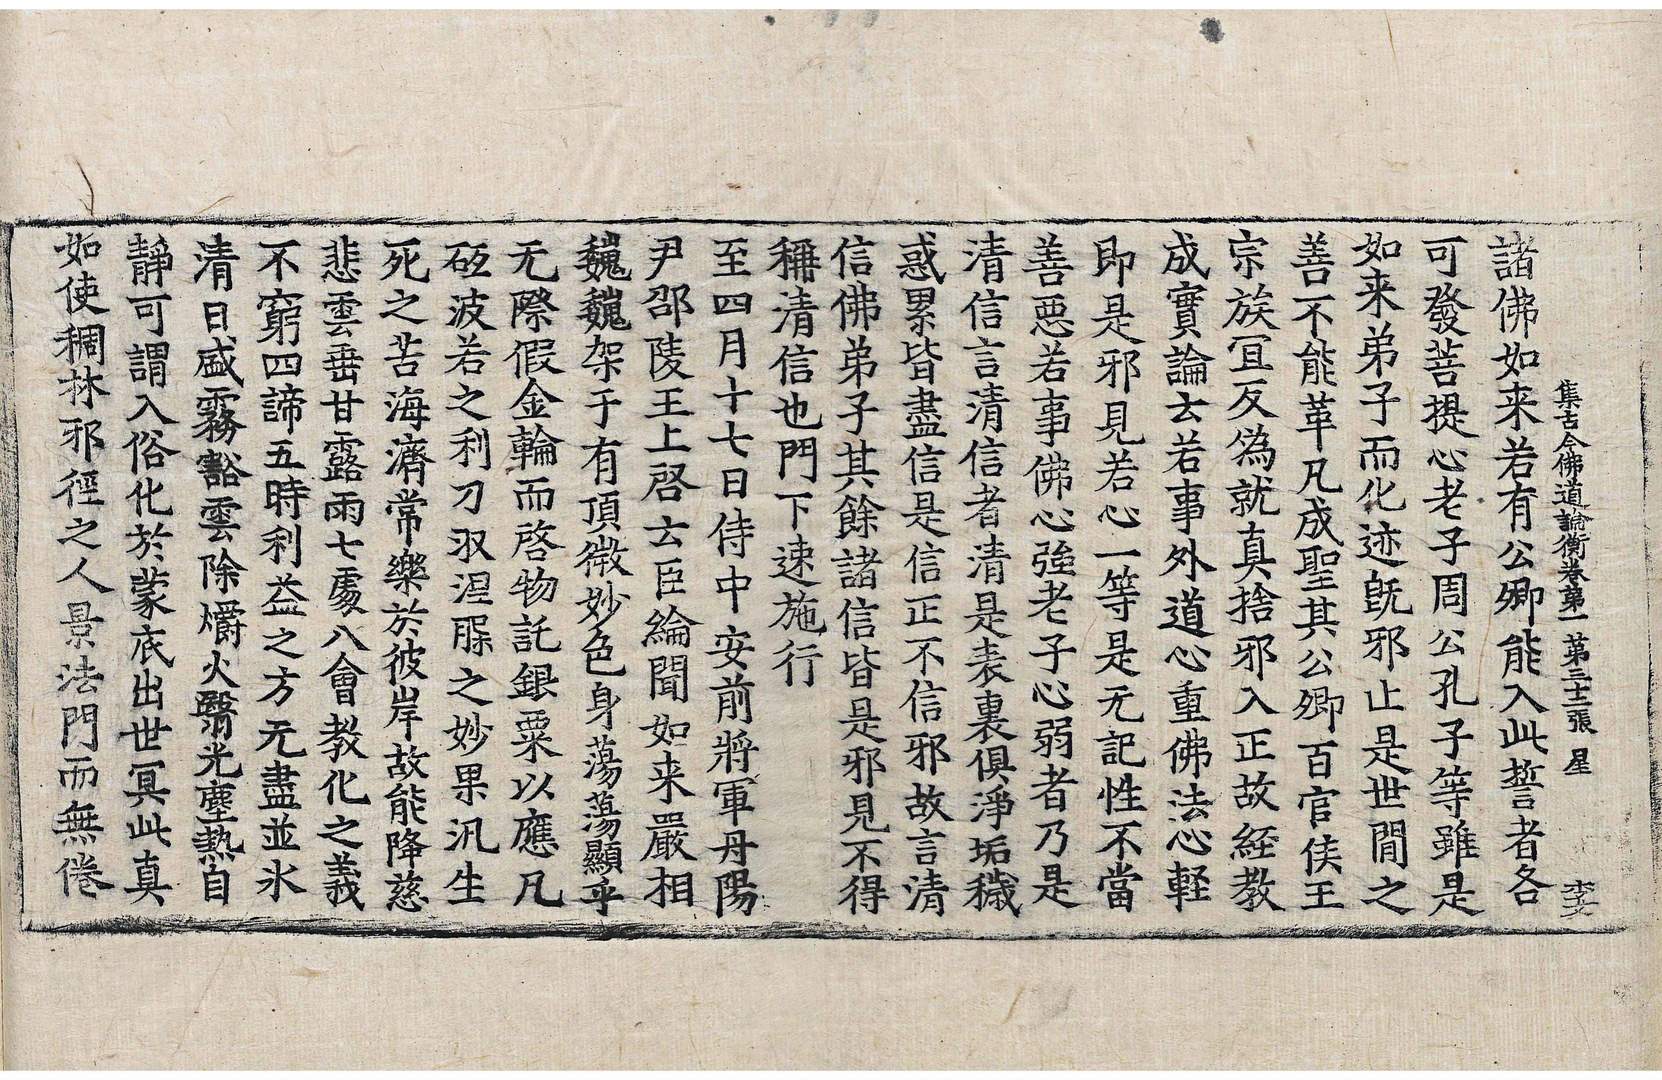 集古今佛道論衡卷第一 第三十二張 星
諸佛如来若有公卿能入此誓者各
可發菩提心老子周公孔子等雖是
如来弟子而化迹旣邪止是世間之
善不能革凡成聖其公卿百官侯王
宗族冝反偽就真捨邪入正故経教
成實論云若事外道心重佛法心軽
即是邪見若心一等是无記性不當
善惡若事佛心強老子心弱者乃是
清信言清信者清是表裏俱淨垢穢
惑累皆盡信是信正不信邪故言清
信佛弟子其餘諸信皆是邪見不得
稱清信也門下速施行
至四月十七日侍中安前將軍丹陽
尹邵陵王上啓云臣綸聞如来嚴相
巍巍架于有頂微妙色身蕩蕩顯乎
无際假金輪而啓物託銀粟以應凡
砥波若之利刀収涅槃之妙果汎生
死之苦海濟常樂於彼岸故能降慈
悲雲垂甘露雨七處八會教化之義
不窮四諦五時利益之方无盡並氷
清日盛霧豁雲除爝火翳光塵熱自
靜可謂入俗化於蒙底出世冥此真
如使稠林邪徑之人景法門而無倦